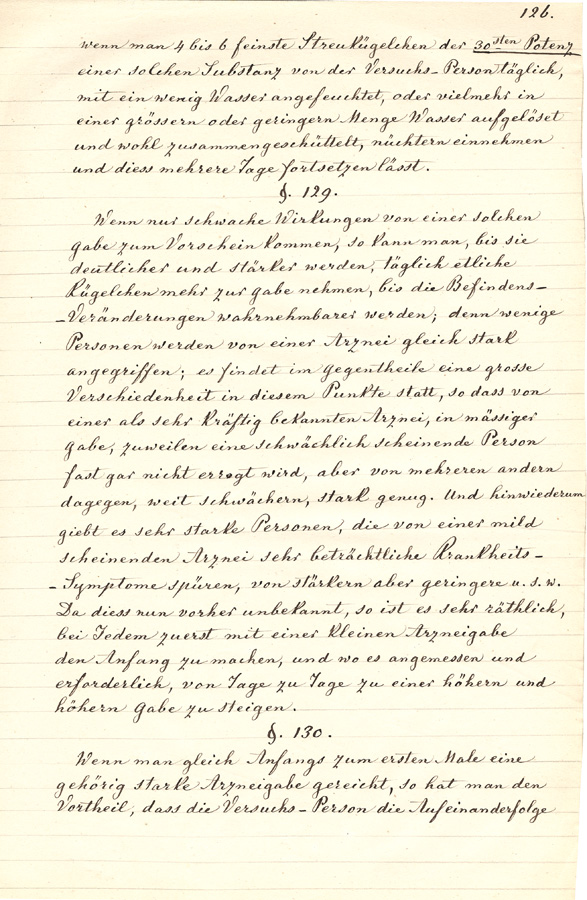 126.
wenn man 4 bis 6 feinste Streukügelchen der 30sten Potenz
einer solchen Substanz von der Versuchs-Person täglich,
mit ein wenig Wasser angefeuchtet, oder vielmehr in
einer grössern oder geringern Menge Wasser aufgelöset
und wohl zusammengeschüttelt, nüchtern einnehmen
und diess mehrere Tage fortsetzen lässt.
§. 129.
Wenn nur schwache Wirkungen von einer solchen
Gabe zum Vorschein kommen, so kann man, bis sie
deutlicher und stärker werden, täglich etliche
Kügelchen mehr zur Gabe nehmen, bis die Befindens-
-Veränderungen wahrnehmbarer werden; denn wenige
Personen werden von einer Arznei gleich stark
angegriffen; es findet im Gegentheile eine grosse
Verschiedenheit in diesem Punkte statt, so dass von
einer als sehr kräftig bekannten Arznei, in mässiger
Gabe, zuweilen eine schwächlich scheinende Person
fast gar nicht erregt wird, aber von mehreren andern
dagegen, weit schwächern, stark genug. Und hinwiederum
giebt es sehr starke Personen, die von einer mild
scheinenden Arznei sehr beträchtliche Krankheits-
-Symptome spüren, von stärkern aber geringere u. s. w.
Da diess nun vorher unbekannt, so ist es sehr räthlich,
bei Jedem zuerst mit einer kleinen Arzneigabe
den Anfang zu machen, und wo es angemessen und
erforderlich, von Tage zu Tage zu einer höhern und
höhern Gabe zu steigen.
§. 130.
Wenn man gleich Anfangs zum ersten Male eine
gehörig starke Arzneigabe gereicht, so hat man den
Vortheil, dass die Versuchs-Person die Aufeinanderfolge